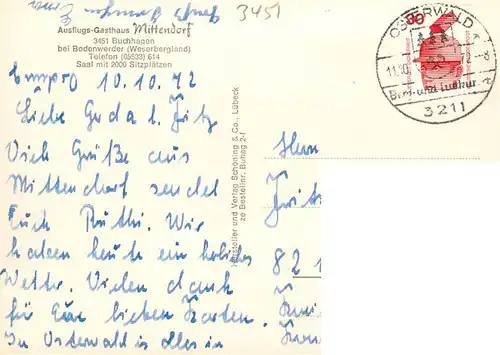 3451
Ausflugs-Gasthaus Mittendorf
3451 Buchhagen
bei Bodenwerder (Weserbergland)
Telefon (05533) 614
Saal mit 2000 Sitzplätzen
10.10.72
Liebe Gerda u. Fritz
Viele Grüße aus
Mittendorf sendet
Euch Ruthi. Wir
haben heute ein herliches
Wetter. Vielen dank
für Eure lieben Karten.
In Osterwald ist alles in
Hersteller und Verlag Schöning & Co., Lübeck
ze Bestellnr. Buhag 2-f
30
OSTERWALD
11.10.
3211
Herrn
Fritz
82